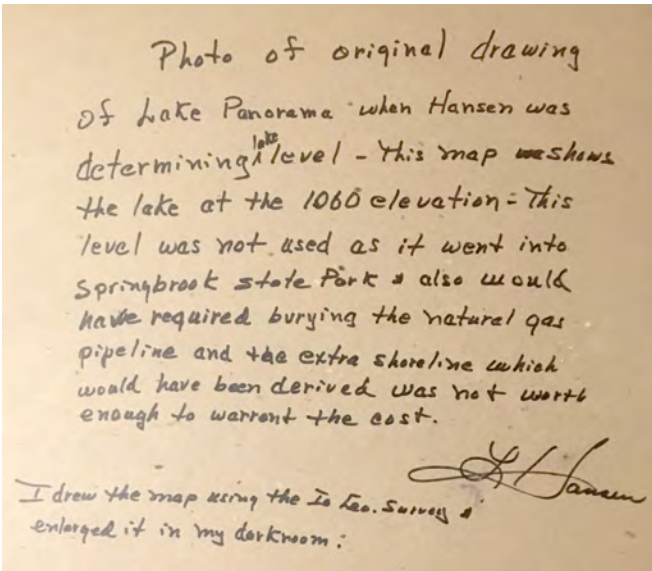 Photo of original drawing
of Lake Panorama when Hansen was
determining lake level - This map shows
the lake at the 1060 elevation - This
level was not used as it went into
Springbrook state Park & also would
have required burying the natural gas
pipeline and the extra shoreline which
would have been derived was not worth
enough to warrant the cost.
Hansen
I drew the map using the Io Geo. Survey &
enlarged it in my darkroom.